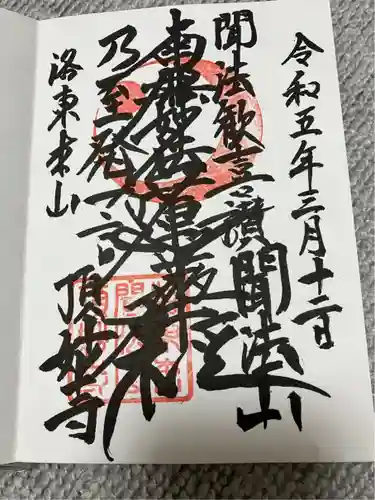 令和五年三月十二日
聞法歓喜讃
聞法山
南無妙法蓮華経
乃至発一言
洛東本山
頂妙寺